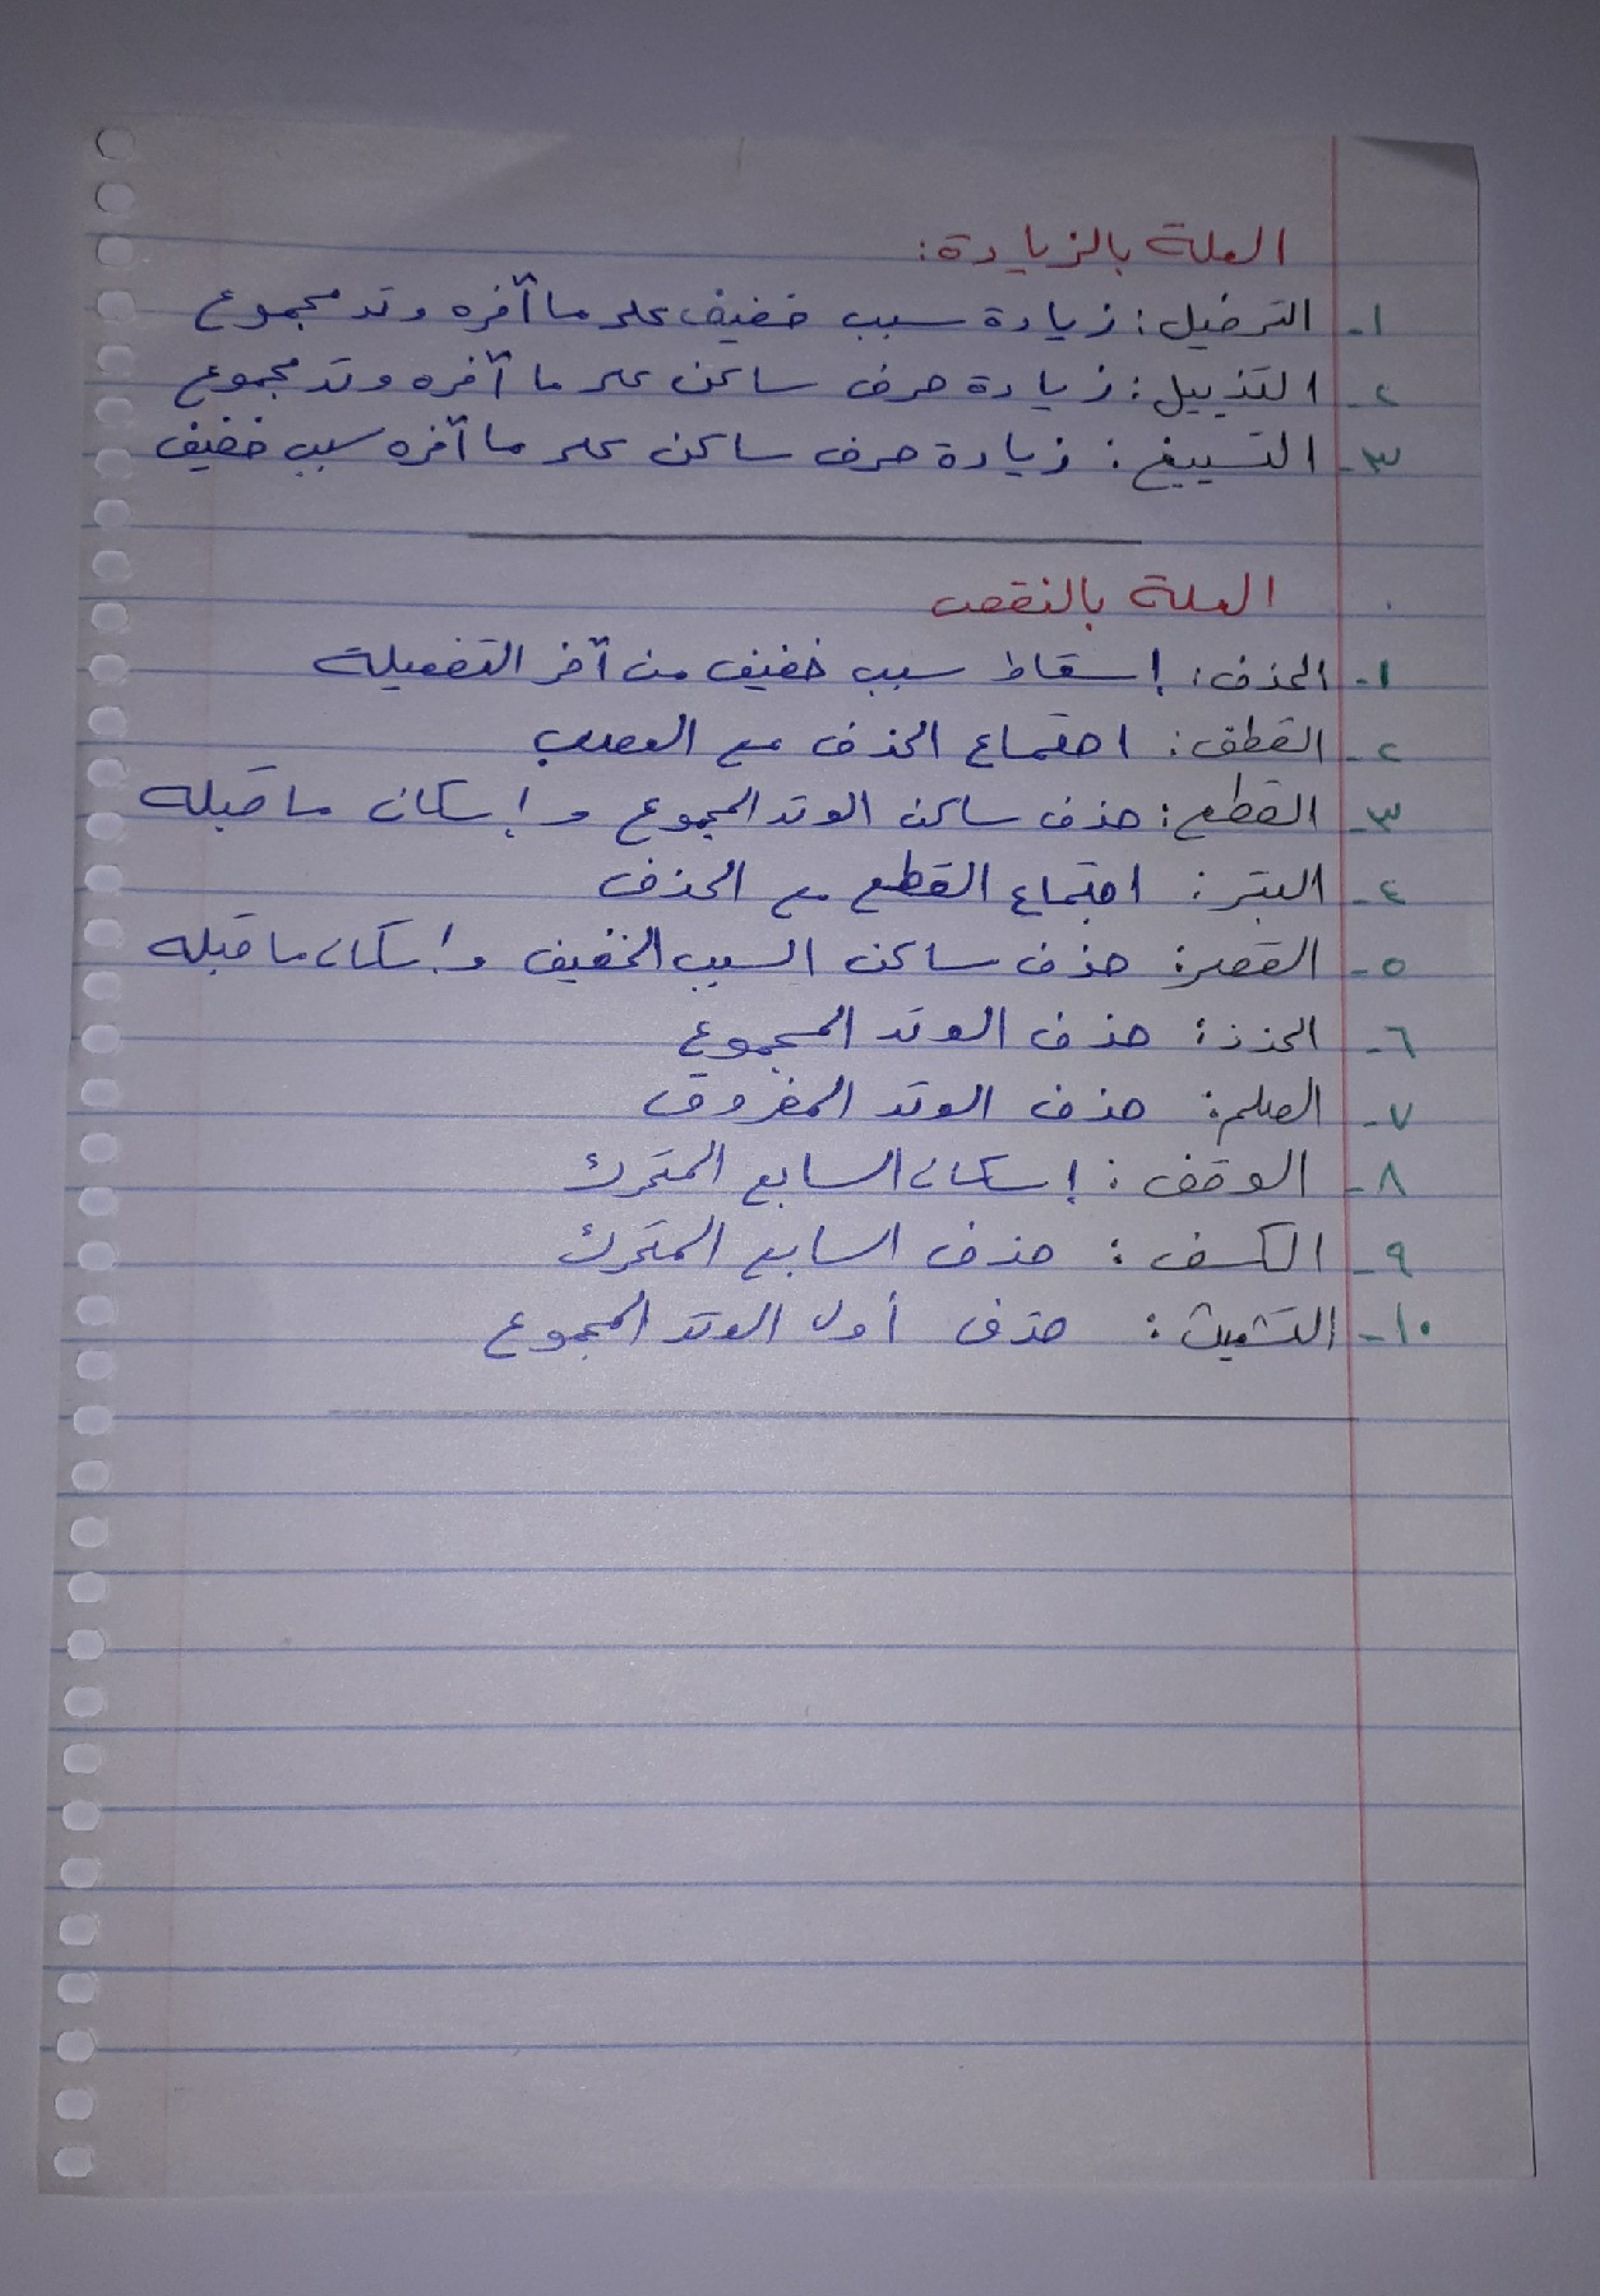 العلة بالزيادة:
١- الترفيل: زيادة سبب خفيف على ما آخره وتد مجموع
٢- التذييل: زيادة حرف ساكن على ما آخره وتد مجموع
٣- التسبيغ: زيادة حرف ساكن على ما آخره سبب خفيف
العلة بالنقص
١- الحذف: إسقاط سبب خفيف من آخر التفعيلة
٢- القطف: اجتماع الحذف مع العصب
٣- القطع: حذف ساكن الوتد المجموع وإسكان ما قبله
٤- البتر: اجتماع القطع مع الحذف
٥- القصر: حذف ساكن السبب الخفيف وإسكان ما قبله
٦- الحذذ: حذف الوتد المجموع
٧- الصلم: حذف الوتد المفروق
٨- الوقف: إسكان السابع المتحرك
٩- الكسف: حذف السابع المتحرك
١٠- التشعيث: حذف أول الوتد المجموع